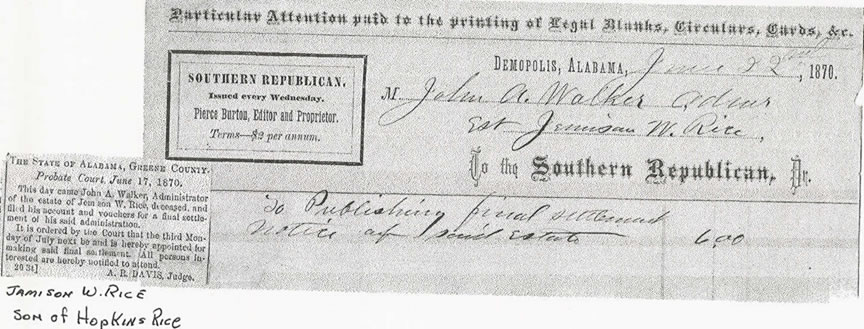 Particular Attention paid to the printing of Legal Blanks, Circulars, Cards, &c.
DEMOPOLIS, ALABAMA, June 22nd, 1870.
SOUTHERN REPUBLICAN,
Issued every Wednesday.
Pierce Burton, Editor and Proprietor.
Terms—$2 per annum.
M John A. Walker Admr
Est Jemison W. Rice,
To the Southern Republican, Dr.
To Publishing final settlement
notice of said Estate 6.00
THE STATE OF ALABAMA, GREENE COUNTY.
Probate Court, June 17, 1870.
This day came John A. Walker, Administrator
of the estate of Jemison W. Rice, deceased, and
filed his account and vouchers for a final settle-
ment of his said administration.
It is ordered by the Court that the third Mon-
day of July next be and is hereby appointed for
making said final settlement. All persons in-
terested are hereby notified to attend.
20 3t] A. R. DAVIS, Judge.
JAMISON W. RICE
SON OF HOPKINS RICE